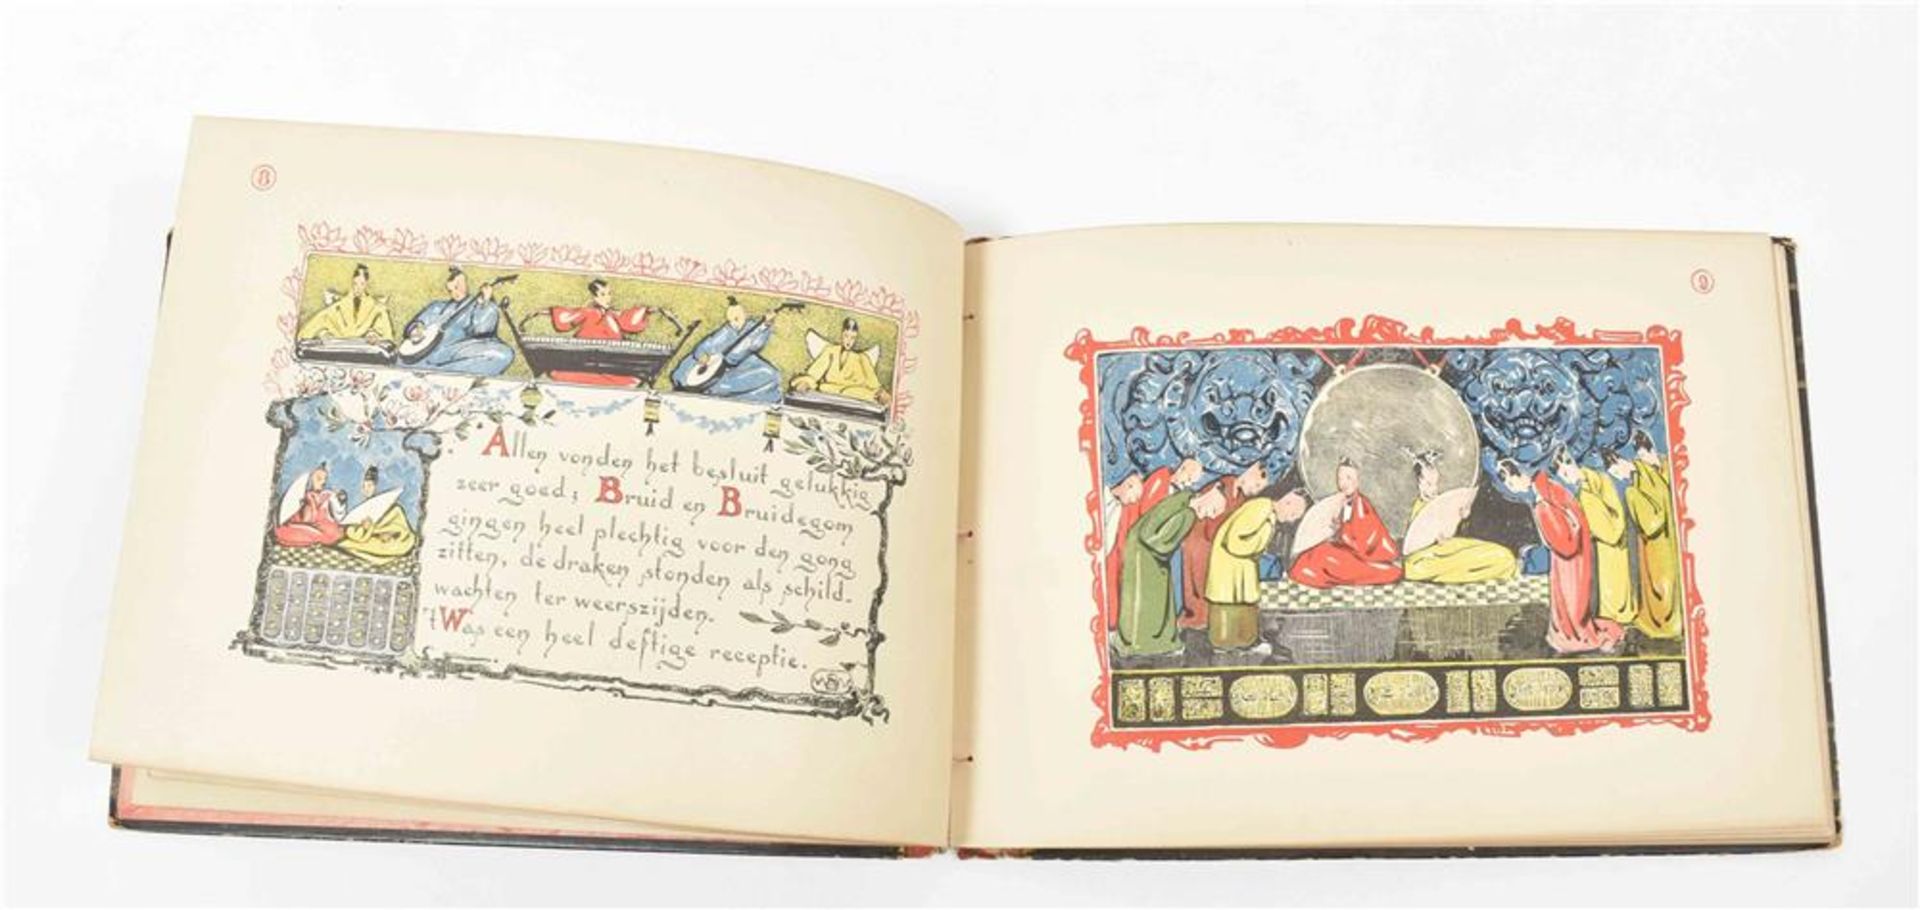 8
Allen vonden het besluit gelukkig
zeer goed; Bruid en Bruidegom
gingen heel plechtig voor den gong
zitten, de draken stonden als schild-
wachten ter weerszijden.
't Was een heel deftige receptie.
9